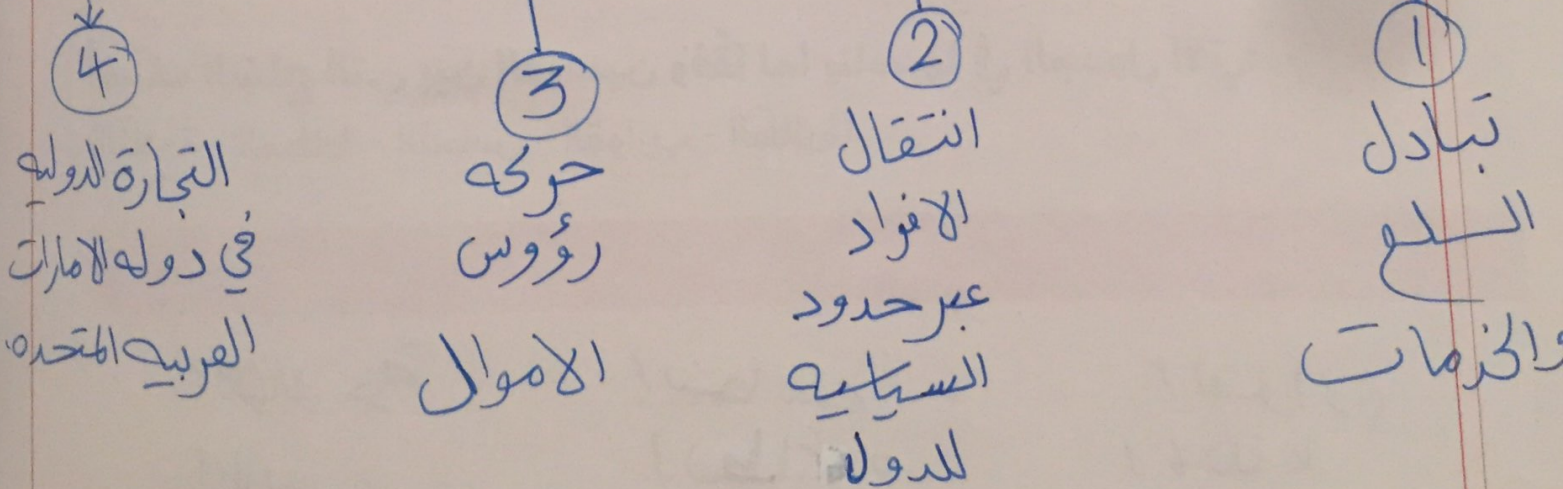 ①
تبادل
السلع
والخدمات
②
انتقال
الافراد
عبر حدود
السياسيه
للدوله
③
حركه
رؤوس
الاموال
④
التجارة الدوليه
في دوله الامارات
العربيه المتحده.